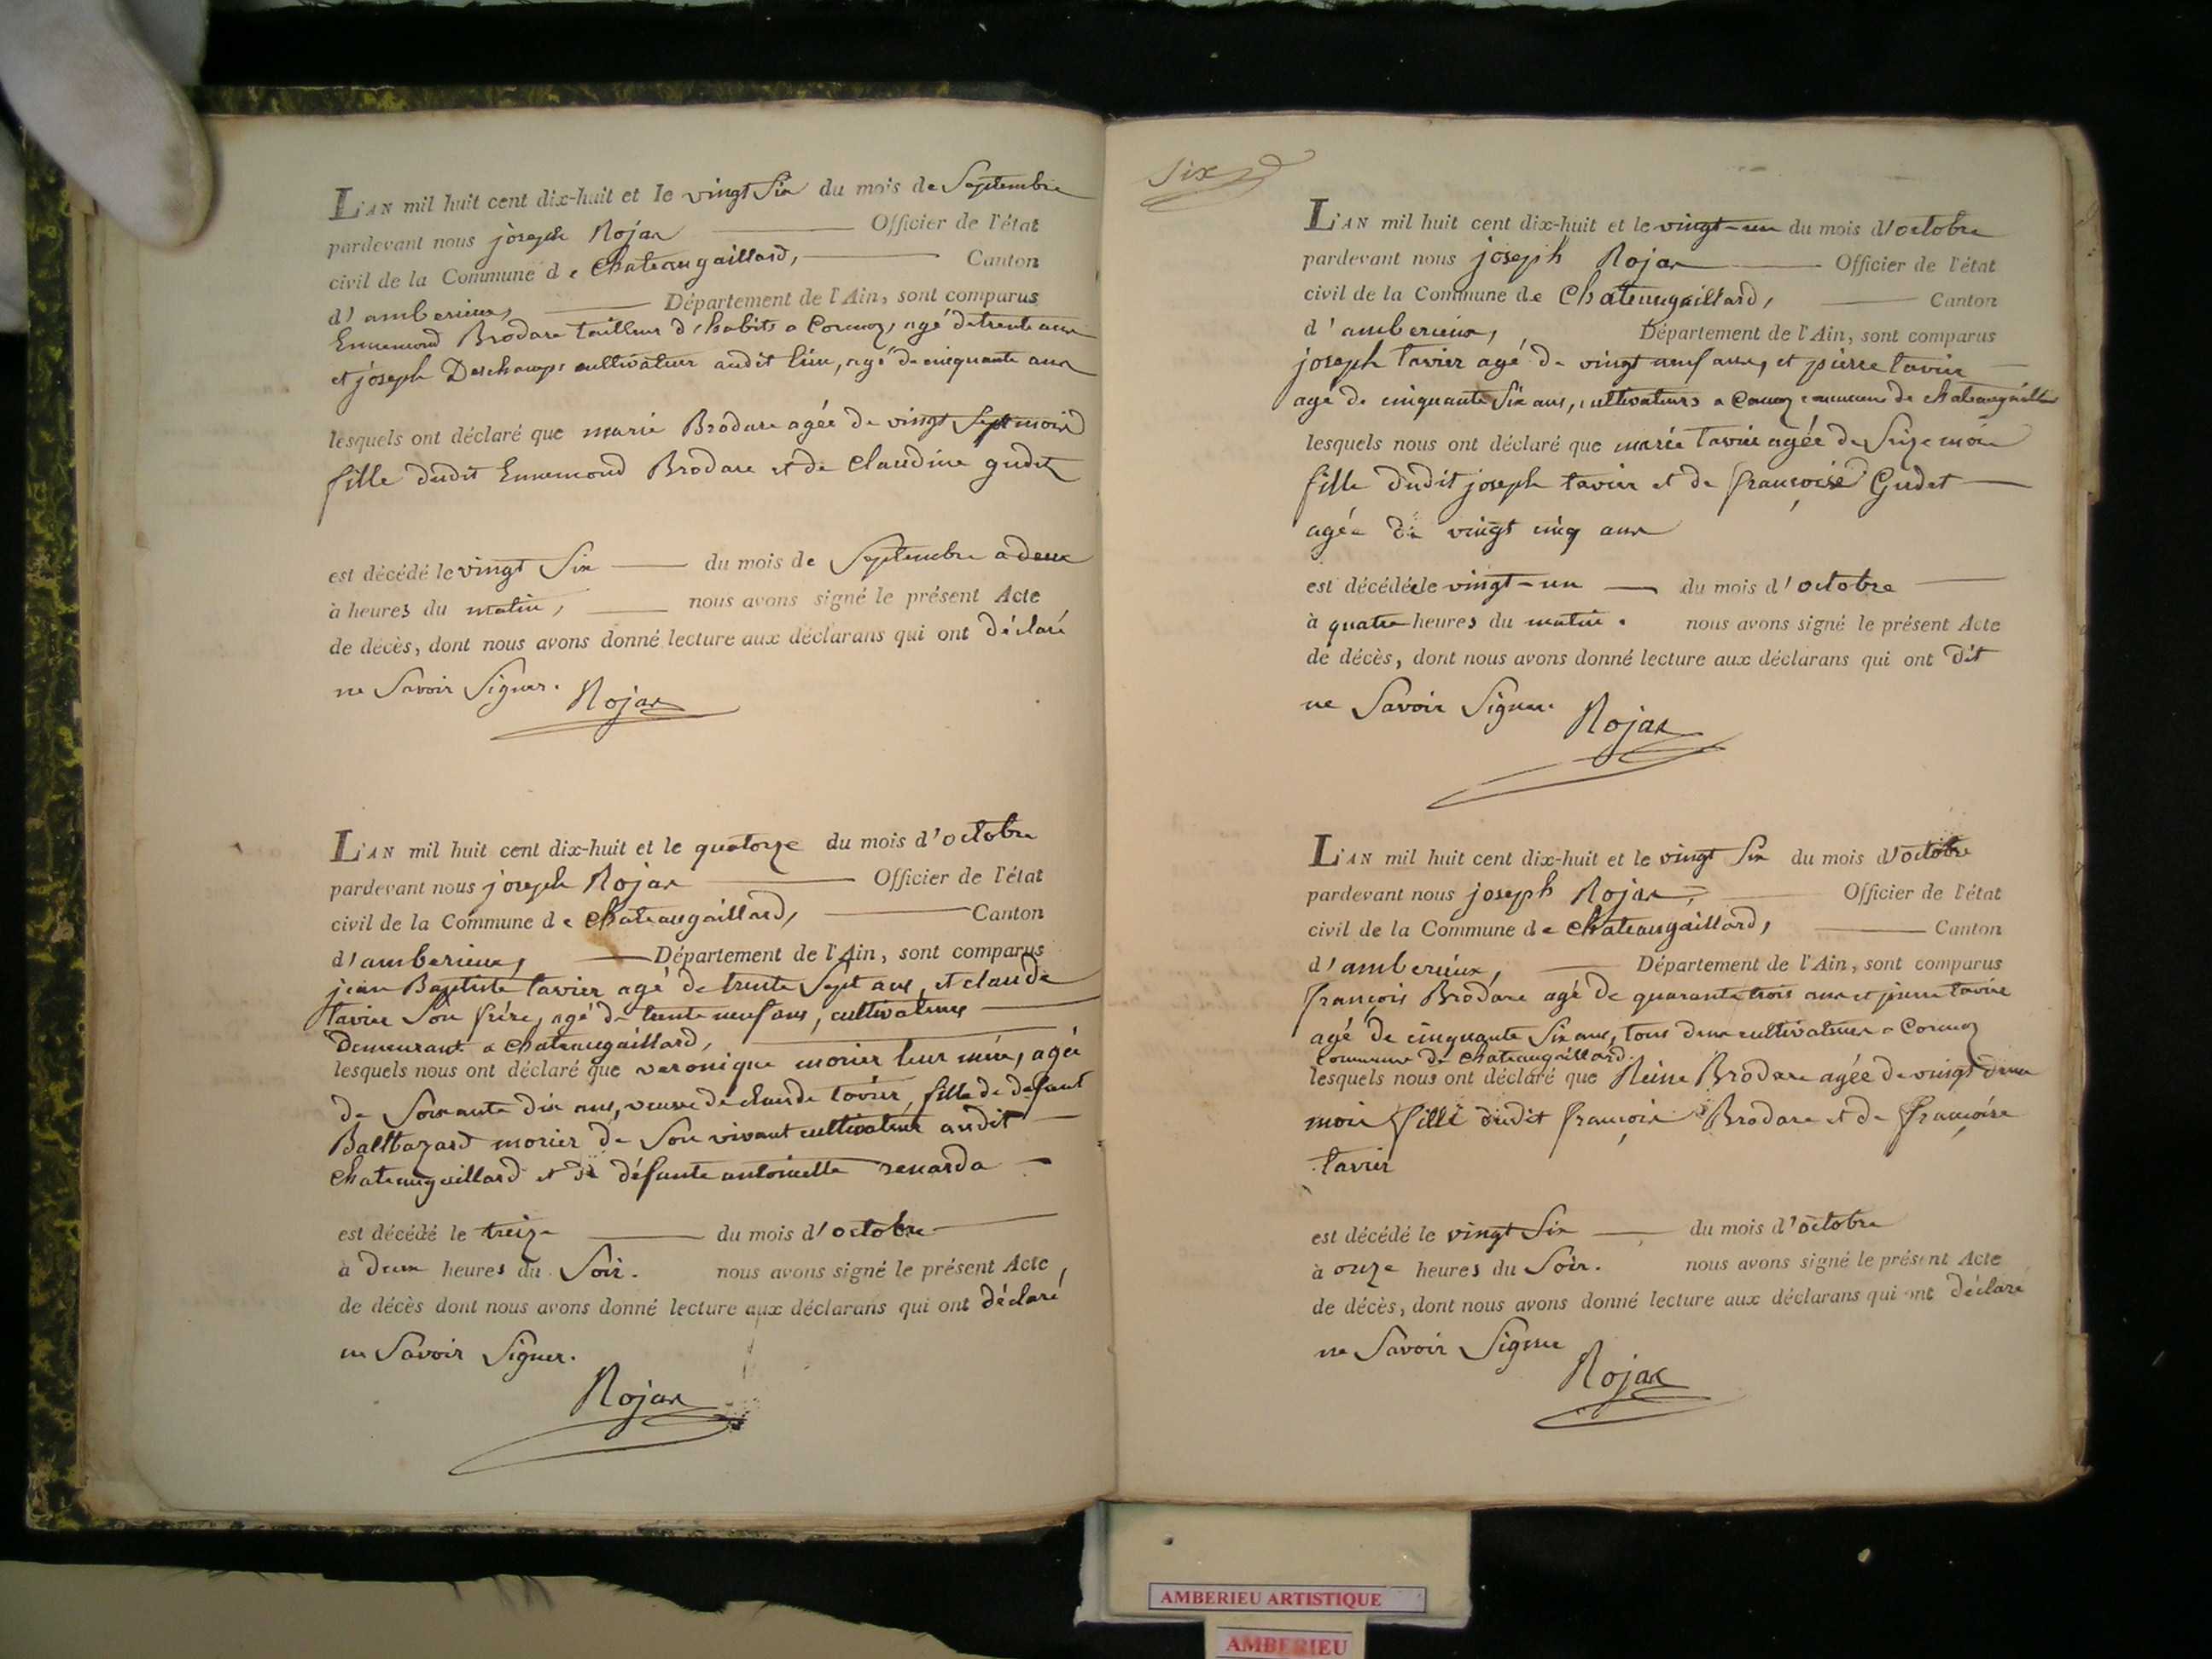 L'AN mil huit cent dix-huit et le vingt Six du mois de Septembre
pardevant nous joseph Rojat Officier de l'état
civil de la Commune de Chateaugaillard, Canton
d'amberieux, Département de l'Ain, sont comparus
Ennemond Brodare tailleur d'habits a Cormoz, agé de trente ans
et joseph Deschamps cultivateur audit lieu, agé de cinquante ans
lesquels ont déclaré que marie Brodare agée de vingt Sept mois
fille dudit Ennemond Brodare et de Claudine gudet
est décédé le vingt Six du mois de Septembre a deux
à heures du matin, nous avons signé le présent Acte
de décès, dont nous avons donné lecture aux déclarans qui ont déclaré
ne Savoir Signer. Rojat
L'AN mil huit cent dix-huit et le quatorze du mois d'octobre
pardevant nous joseph Rojat Officier de l'état
civil de la Commune de chateaugaillard, Canton
d'amberieux, Département de l'Ain, sont comparus
jean Baptiste tavier agé de trente Sept ans, et claude
tavier Son frère, agé de trente neuf ans, cultivateurs
Demeurant a chateaugaillard,
lesquels nous ont déclaré que veronique morier leur mère, agée
de Soixante dix ans, veuve de claude tavier, fille de defunt
Balthazard morier de Son vivant cultivateur audit
chateaugaillard et de défunte antoinette renarda
est décédé le treize du mois d'octobre
à deux heures du Soir. nous avons signé le présent Acte,
de décès dont nous avons donné lecture aux déclarans qui ont déclaré
ne Savoir Signer.
Rojat
Six
L'AN mil huit cent dix-huit et le vingt-un du mois d'octobre
pardevant nous joseph Rojat Officier de l'état
civil de la Commune de Chateaugaillard, Canton
d'amberieux, Département de l'Ain, sont comparus
joseph tavier agé de vingt neuf ans, et pierre tavier
agé de cinquante Six ans, cultivateurs a Cormoz commune de chateaugaillard
lesquels nous ont déclaré que marie tavier agée de Seize mois
fille dudit joseph tavier et de françoise Gudet
agée de vingt cinq ans
est décédée le vingt-un du mois d'octobre
à quatre heures du matin. nous avons signé le présent Acte
de décès, dont nous avons donné lecture aux déclarans qui ont dit
ne Savoir Signer. Rojat
L'AN mil huit cent dix-huit et le vingt Six du mois d'octobre
pardevant nous joseph Rojat, Officier de l'état
civil de la Commune de chateaugaillard, Canton
d'amberieux, Département de l'Ain, sont comparus
françois Brodare agé de quarante trois ans et pierre tavier
agé de cinquante Six ans, tous deux cultivateurs a Cormoz
commune de chateaugaillard.
lesquels nous ont déclaré que Reine Brodare agée de vingt deux
mois fille dudit françois Brodare et de françoise
tavier
est décédé le vingt Six du mois d'octobre
à onze heures du Soir. nous avons signé le présent Acte
de décès, dont nous avons donné lecture aux déclarans qui ont déclaré
ne Savoir Signer
Rojat
AMBERIEU ARTISTIQUE
AMBERIEU